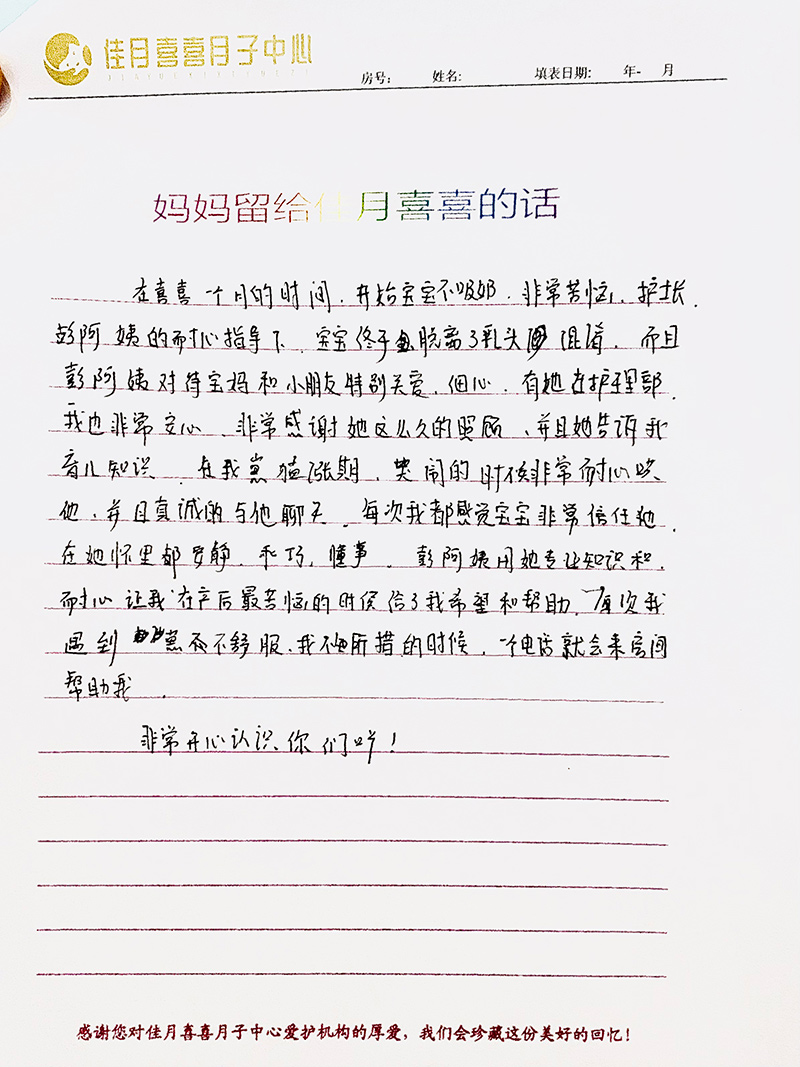 佳月喜喜月子中心
房号: 姓名: 填表日期: 年- 月
妈妈留给佳月喜喜的话
在喜喜一个月的时间，开始宝宝不吸奶，非常苦恼，护士长，
彭阿姨的耐心指导下，宝宝终于脱离了乳头混淆，而且
彭阿姨对待宝妈和小朋友特别关爱，细心，有她在护理部，
我也非常安心，非常感谢她这么久的照顾，并且她告诉我
育儿知识，在我崽猛涨期，哭闹的时候非常耐心哄
他，并且真诚的与他聊天，每次我都感觉宝宝非常信任她，
在她怀里都安静，乖巧，懂事，彭阿姨用她专业知识和，
耐心让我在产后最苦恼的时候给了我希望和帮助，每次我
遇到崽不舒服，我不知所措的时候，一个电话就会来房间
帮助我。
非常开心认识你们吖！
感谢您对佳月喜喜月子中心爱护机构的厚爱，我们会珍藏这份美好的回忆！